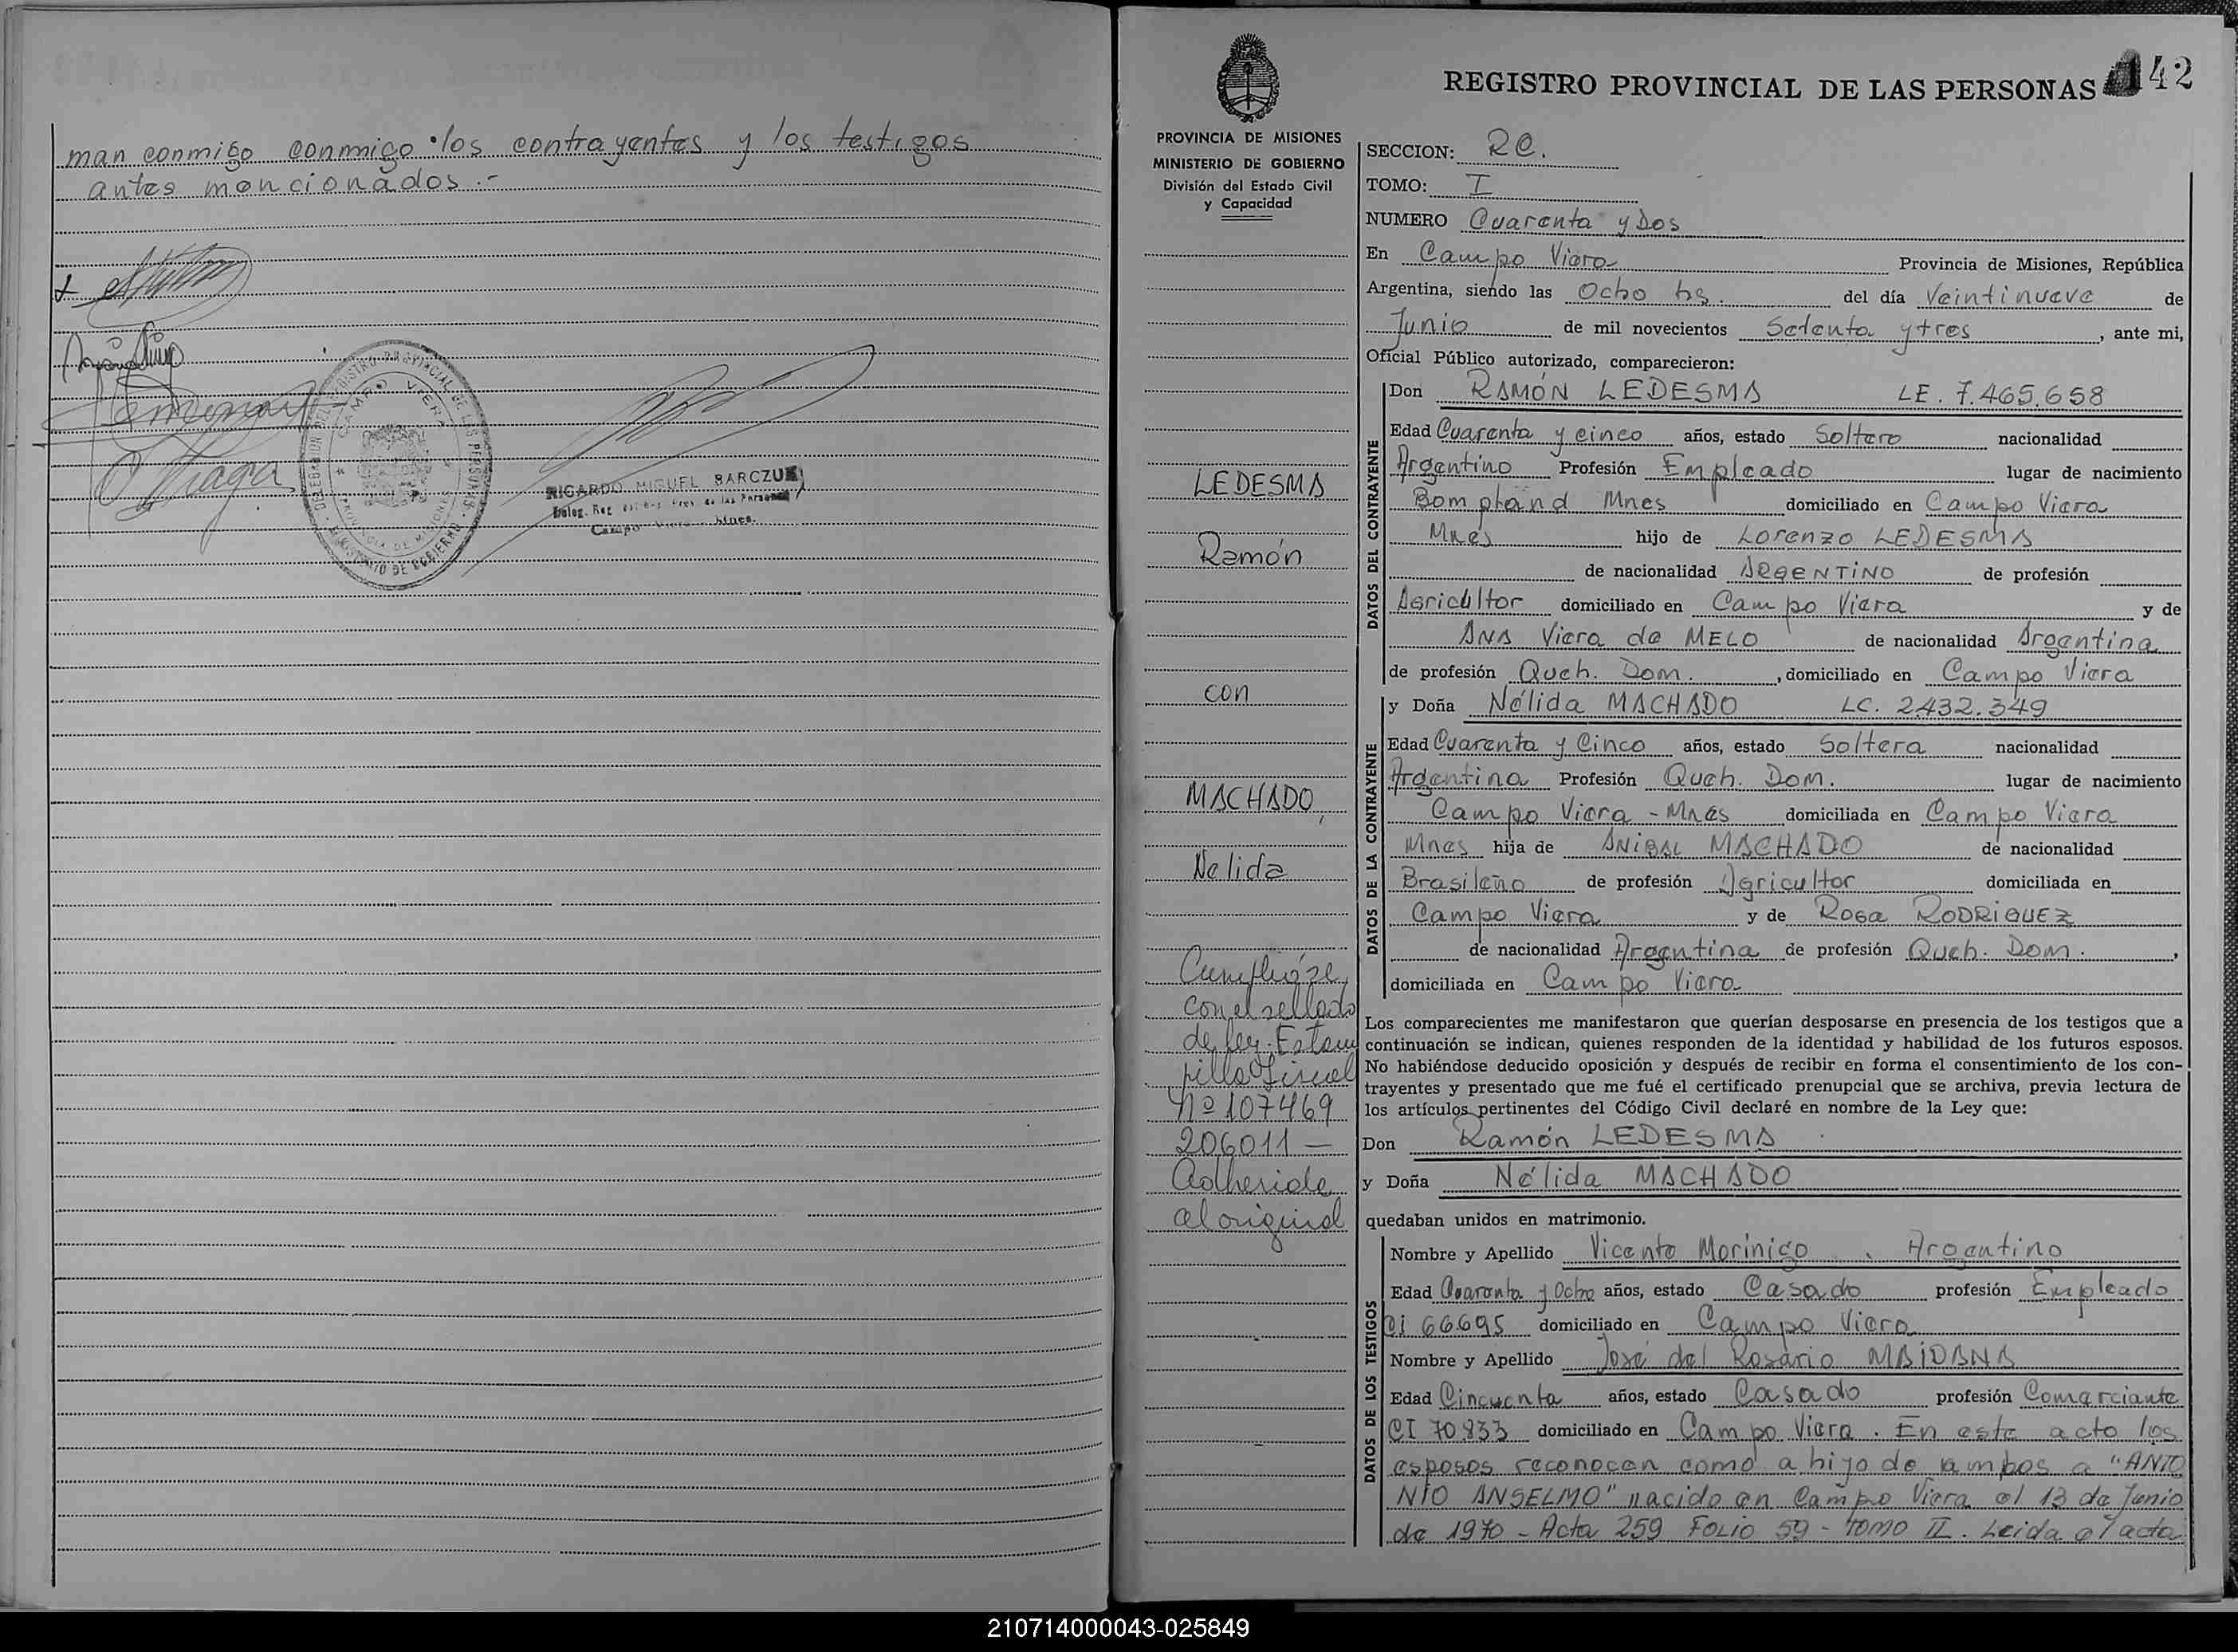 man conmigo conmigo los contrayentes y los testigos
antes mencionados.-
DELEGACION DEL REGISTRO PROVINCIAL DE LAS PERSONAS
CAMPO VIERA
PROVINCIA DE MISIONES
MINISTERIO DE GOBIERNO
RICARDO MIGUEL BARCZUK
Campo Viera - Mnes.
142
REGISTRO PROVINCIAL DE LAS PERSONAS
PROVINCIA DE MISIONES
MINISTERIO DE GOBIERNO
División del Estado Civil
y Capacidad
LEDESMA
Ramón
con
MACHADO,
Nelida
Cumplióse
con el sellado
de ley. Estam
pilla Fiscal
Nº 107469
206011 —
Adheride
al original
SECCION: RC.
TOMO: I
NUMERO Cuarenta y Dos
En Campo Viera Provincia de Misiones, República
Argentina, siendo las Ocho hs. del día Veintinueve de
Junio de mil novecientos Setenta y tres, ante mi,
Oficial Público autorizado, comparecieron:
DATOS DEL CONTRAYENTE
Don RAMÓN LEDESMA LE. 7.465.658
Edad Cuarenta y cinco años, estado Soltero nacionalidad
Argentino Profesión Empleado lugar de nacimiento
Bompland Mnes domiciliado en Campo Viera
Mnes hijo de Lorenzo LEDESMA
de nacionalidad ARGENTINO de profesión
Agricultor domiciliado en Campo Viera y de
ANA Viera de MELO de nacionalidad Argentina
de profesión Queh. Dom., domiciliado en Campo Viera
DATOS DE LA CONTRAYENTE
y Doña Nélida MACHADO LC. 2.432.349
Edad Cuarenta y Cinco años, estado Soltera nacionalidad
Argentina Profesión Queh. Dom. lugar de nacimiento
Campo Viera - Mnes domiciliada en Campo Viera
Mnes hija de ANIBAL MACHADO de nacionalidad
Brasileño de profesión Agricultor domiciliada en
Campo Viera y de Rosa RODRIGUEZ
de nacionalidad Argentina de profesión Queh. Dom.,
domiciliada en Campo Viera
Los comparecientes me manifestaron que querían desposarse en presencia de los testigos que a
continuación se indican, quienes responden de la identidad y habilidad de los futuros esposos.
No habiéndose deducido oposición y después de recibir en forma el consentimiento de los con-
trayentes y presentado que me fué el certificado prenupcial que se archiva, previa lectura de
los artículos pertinentes del Código Civil declaré en nombre de la Ley que:
Don Ramón LEDESMA
y Doña Nélida MACHADO
quedaban unidos en matrimonio.
DATOS DE LOS TESTIGOS
Nombre y Apellido Vicente Morínigo. Argentino
Edad Cuarenta y Ocho años, estado Casado profesión Empleado
CI 66695 domiciliado en Campo Viera
Nombre y Apellido José del Rosario MAIDANA
Edad Cincuenta años, estado Casado profesión Comerciante
CI 70833 domiciliado en Campo Viera. En este acto los
esposos reconocen como a hijo de ambos a "ANTO
NIO ANSELMO" nacido en Campo Viera el 13 de Junio
de 1970 - Acta 259 FOLIO 59 - TOMO II. Leida el acta
210714000043-025849